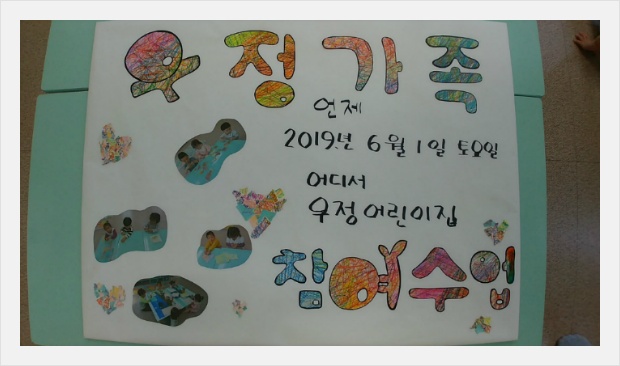 우정가족
언제
2019년 6월 1일 토요일
어디서
우정어린이집
참여수업